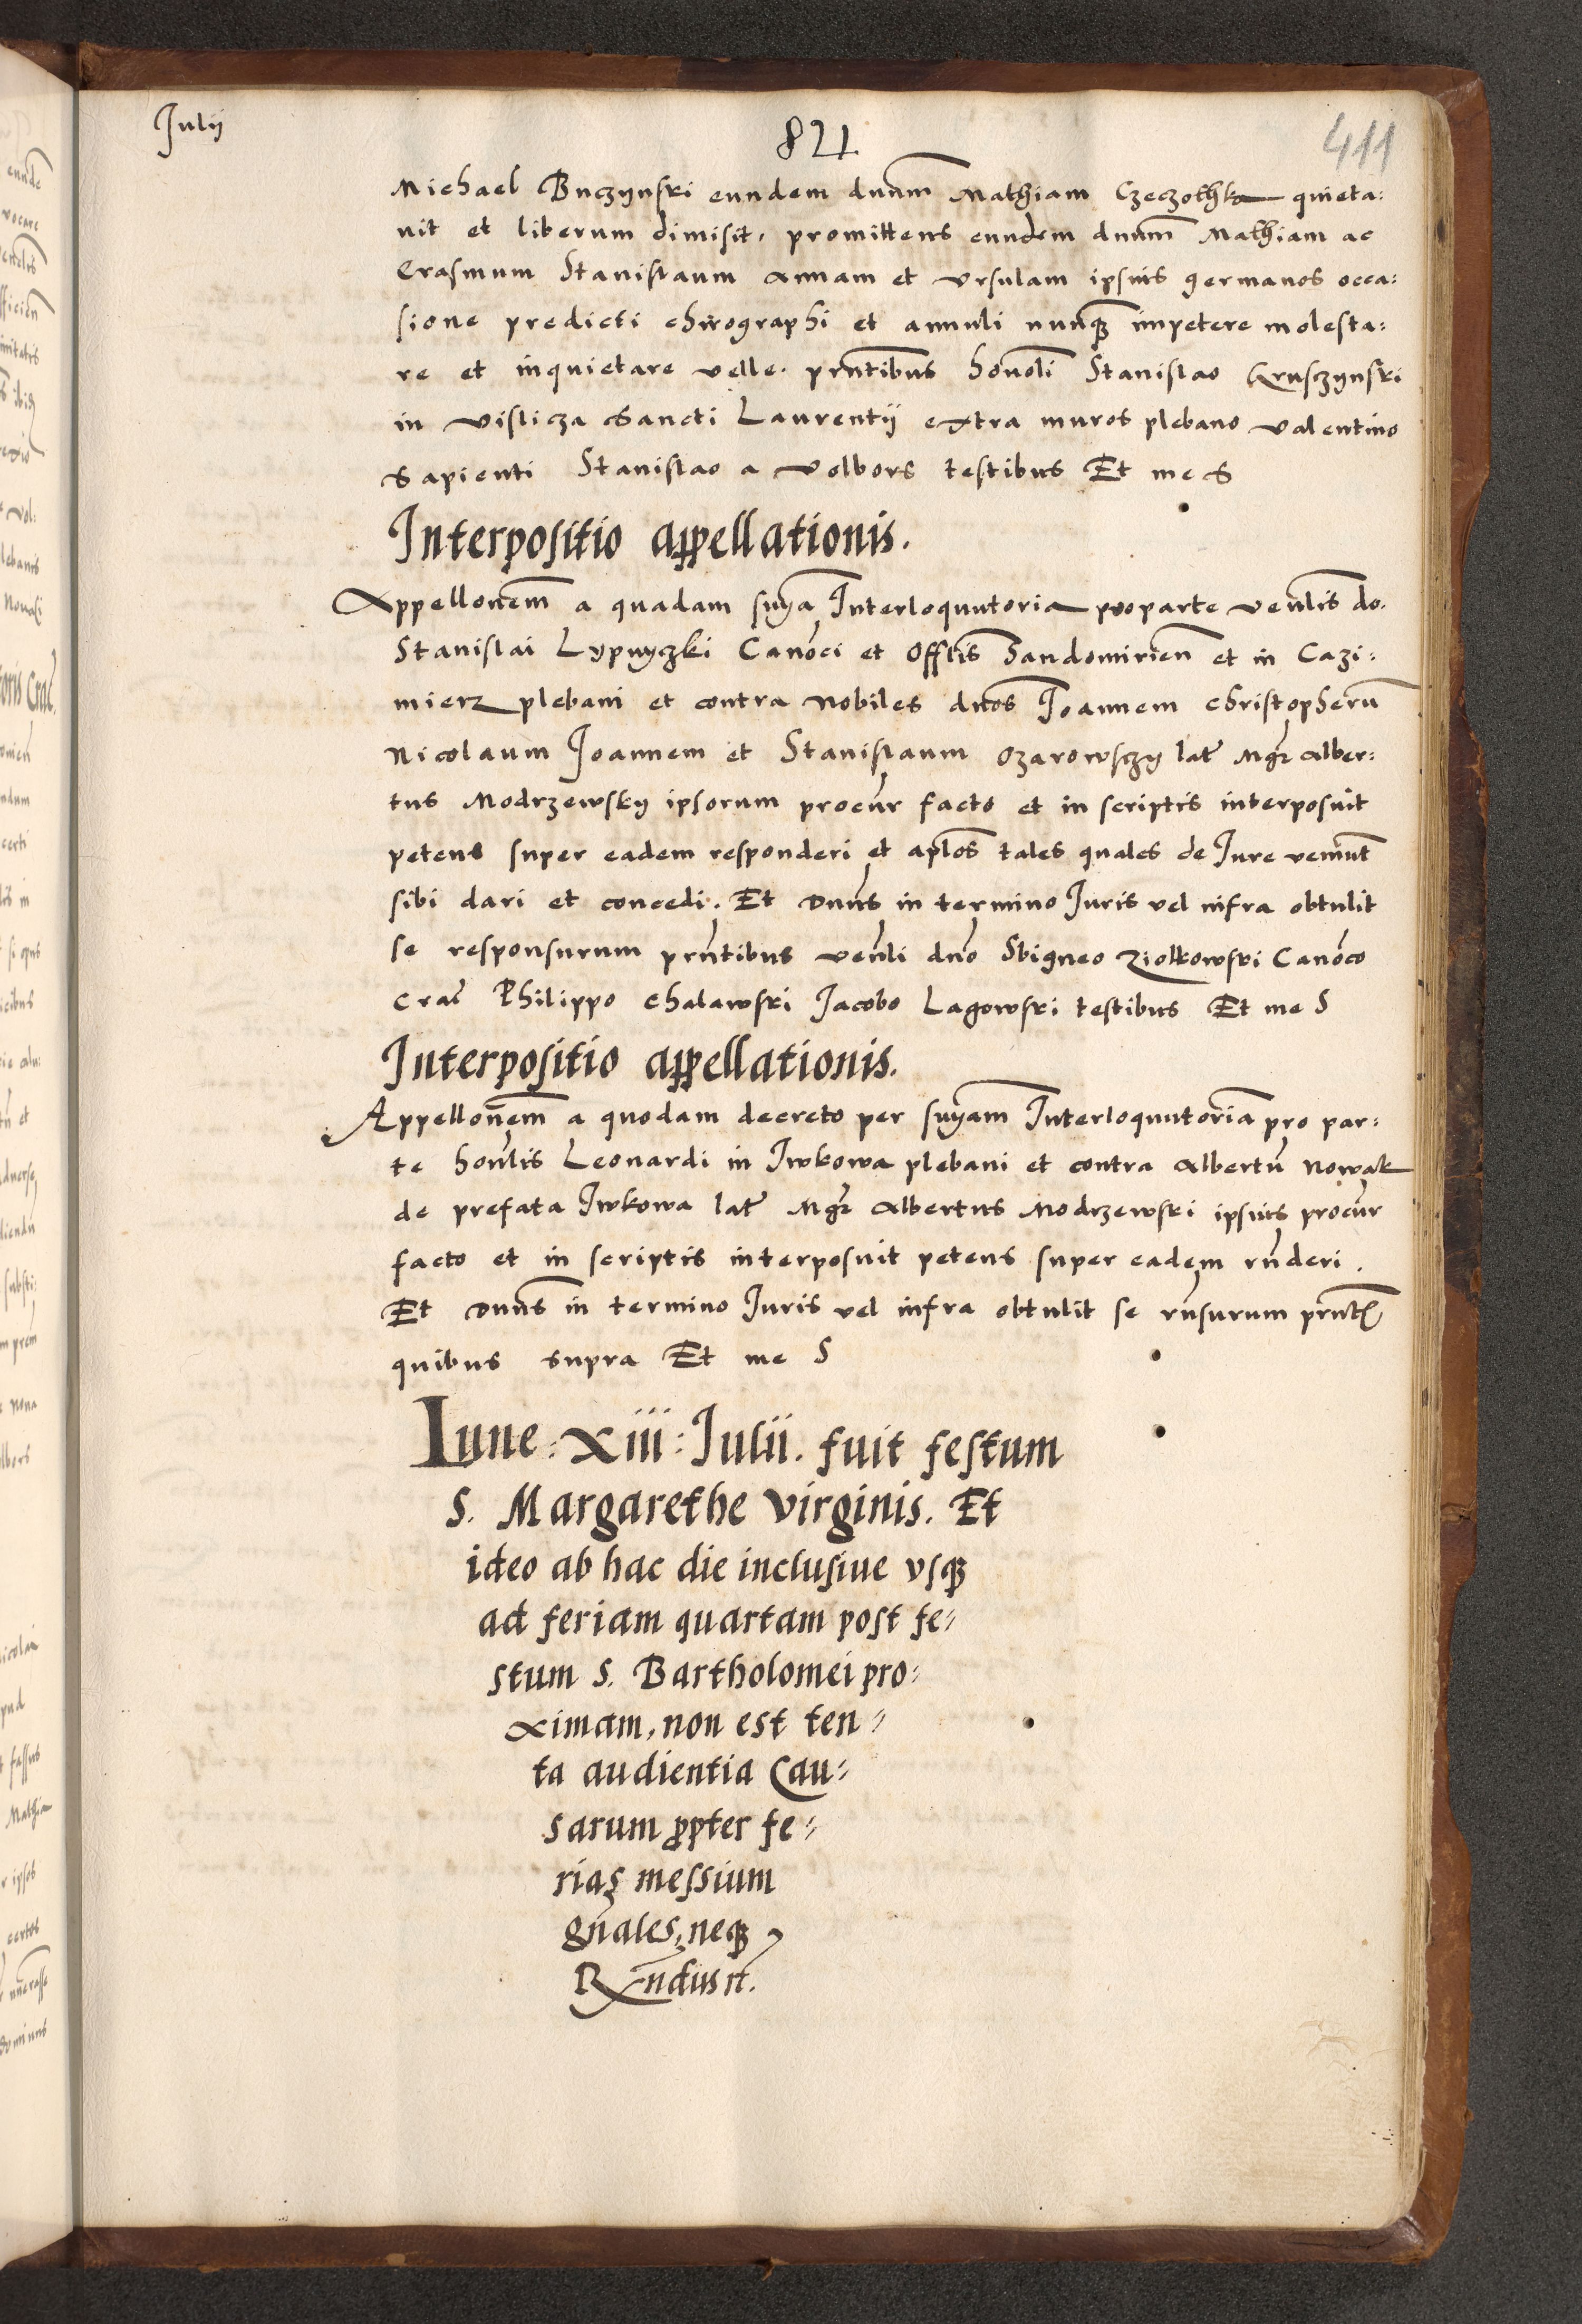 Julij
821
411
Michael Buczynski eundem dnum̄ Mathiam Czeczothka quieta:
uit et liberum dimisit, promittens eundem dnum̄ Mathiam ac
Erasmum Stanislaum Annam et Vrsulam ipsius germanos occa:
sione predicti chirographi et annuli nunqȝ impetere molesta:
re et inquietare velle. prntibus honoli Stanislao Kruszynski
in Vislicza Sancti Laurentij extra muros plebano Valentino
Sapienti Stanislao a Volbors testibus Et me S
Interpositio appellationis.
Appellonem̄ a quadam snya Interloquutoria pro parte venlis do.
Stanislai Lypnyczki Canoci et Offlis Sandomirien et in Cazi:
mierz plebani et contra Nobiles dnos Joannem Christopherū
Nicolaum Joannem et Stanislaum Ozarowsczy lat Mgr Alber:
tus Modrzewsky ipsorum procur facto et in scriptis interposuit
petens super eadem responderi et aplos tales quales de Jure veniunt
sibi dari et concedi. Et Dnus in termino Juris vel infra obtulit
se responsurum prntibus venli dno Sbigneo Ziolkowski Canoco
Crac Philippo Chalawski Jacobo Lagowski testibus Et me S
Interpositio appellationis.
Appellonem̄ a quodam decreto per snyam Interloquutoria pro par:
te honlis Leonardi in Iwkowa plebani et contra Albertū Nowak
de prefata Iwkowa lat Mgr Albertus Modrzewski ipsius procur
facto et in scriptis interposuit petens super eadem rnderi.
Et Dnus in termino Juris vel infra obtulit se rnsurum prnt
quibus supra Et me S
Lune: Xiii: Julii. fuit festum
S. Margarethe virginis. Et
ideo ab hac die inclusiue vsqȝ
ad feriam quartam post fe=
stum S. Bartholomei pro=
ximam, non est ten=
ta audientia Cau=
sarum ꝓpter fe=
rias messium
gnāles, neqȝ